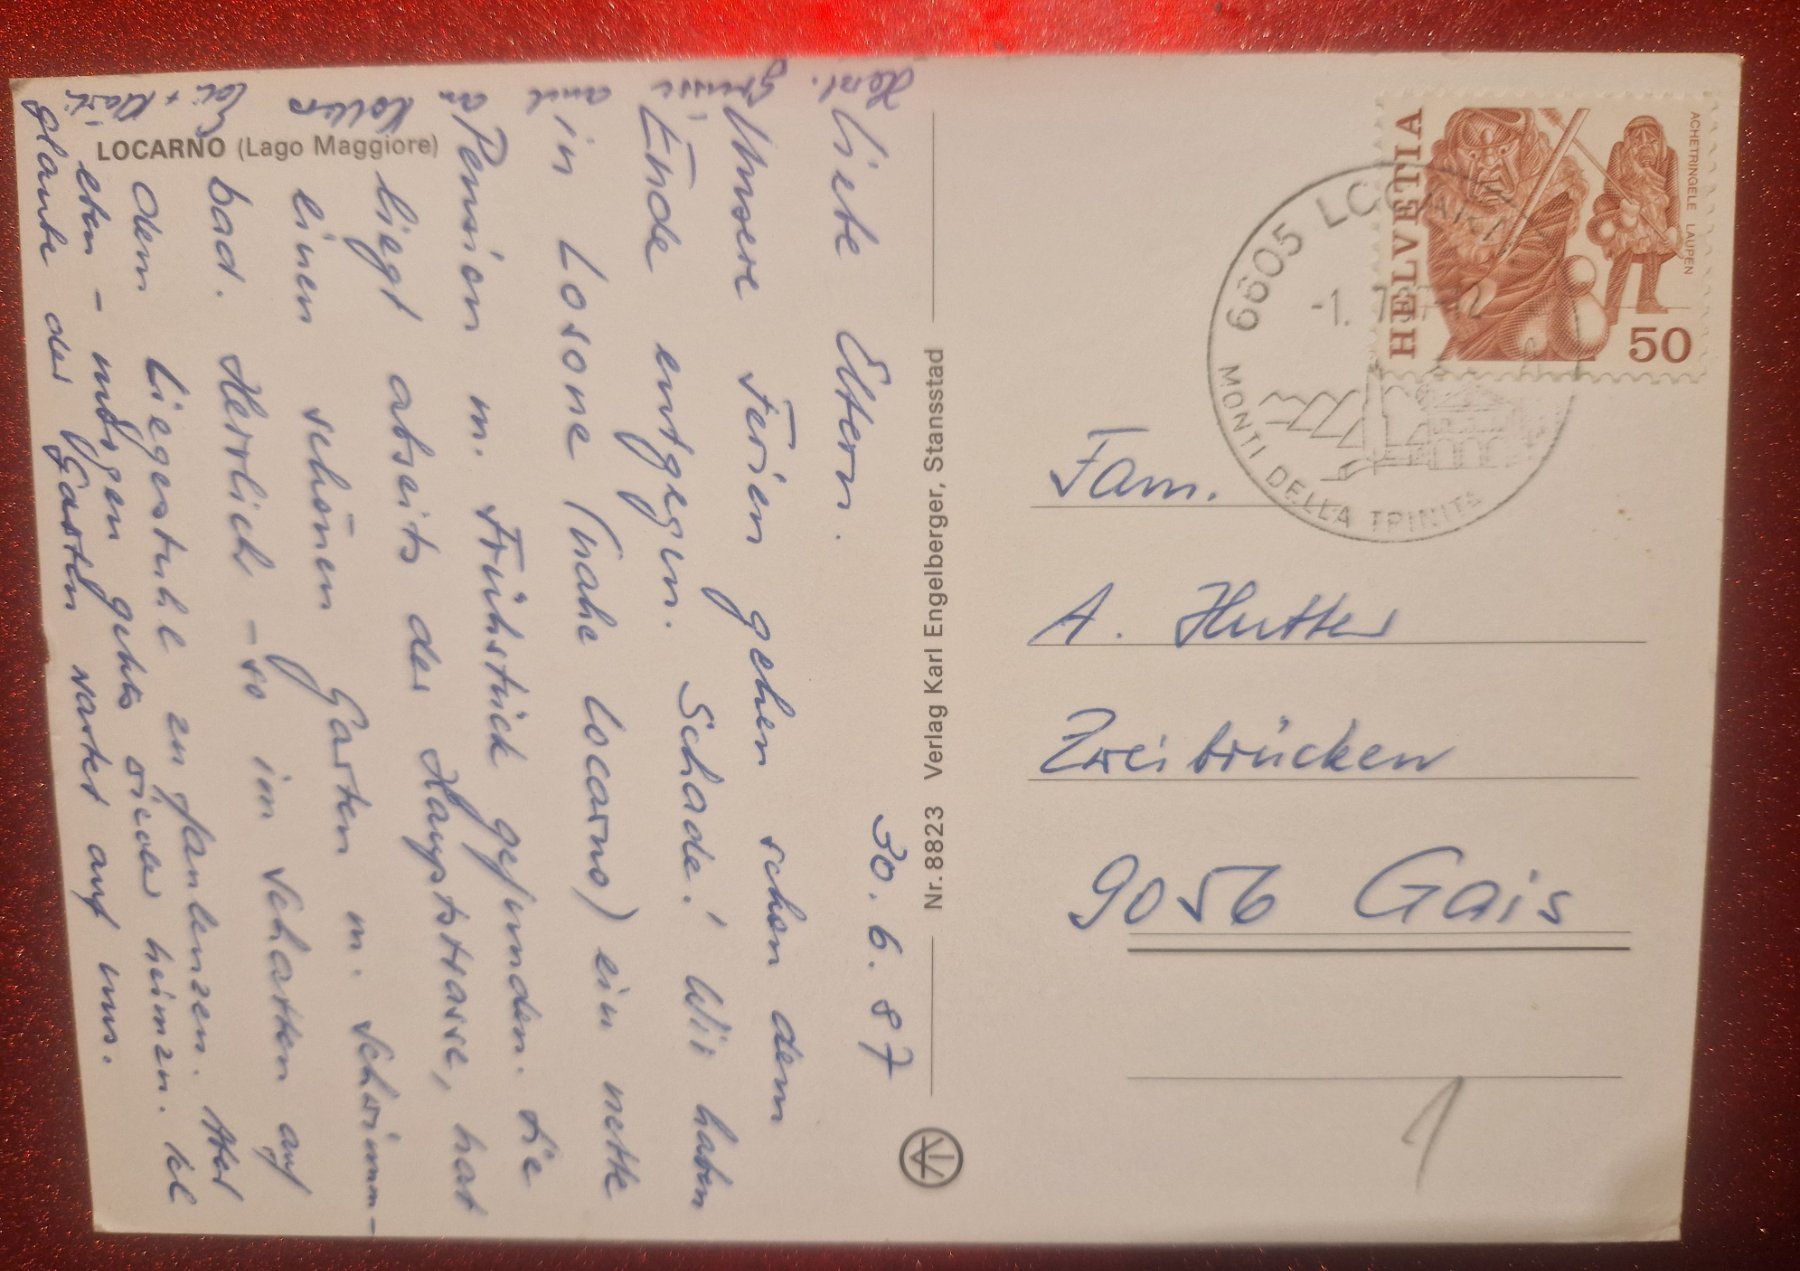 LOCARNO (Lago Maggiore)
30. 6. 87
Liebe Eltern.
Unsere Ferien gehen schon dem
Ende entgegen. Schade! Wir haben
in Losone (nahe Locarno) ein nette
Pension m. Frühstück gefunden. Sie
liegt abseits der Hauptstrasse, hat
einen schönen Garten m. Schwimm-
bad. Herrlich - so im Schatten auf
dem Liegestuhl zu faulenzen. Aber
eben - morgen gehts wieder heimzu. Ich
glaube der Garten wartet auf uns.
Herzl. Grüsse
and an
Nr. 8823 Verlag Karl Engelberger, Stansstad
HELVETIA
ACHETRINGELE LAUPEN
50
6605 LOCARNO
-1. 7. 87-12
MONTI DELLA TRINITÀ
Fam.
A. Hutter
Zweibrücken
9056 Gais
1